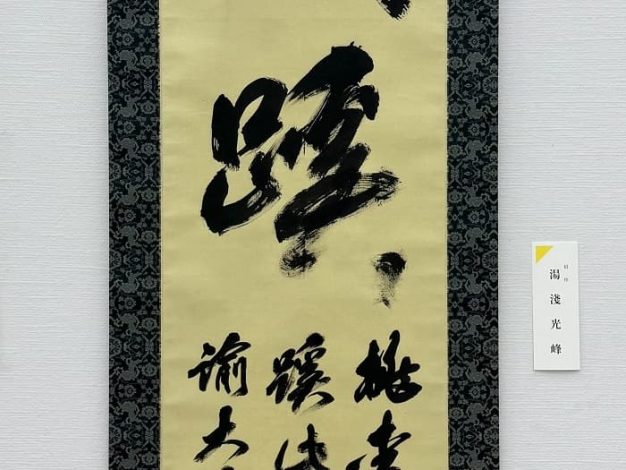 蹊
桃李
蹊此
諭大
湯淺光峰